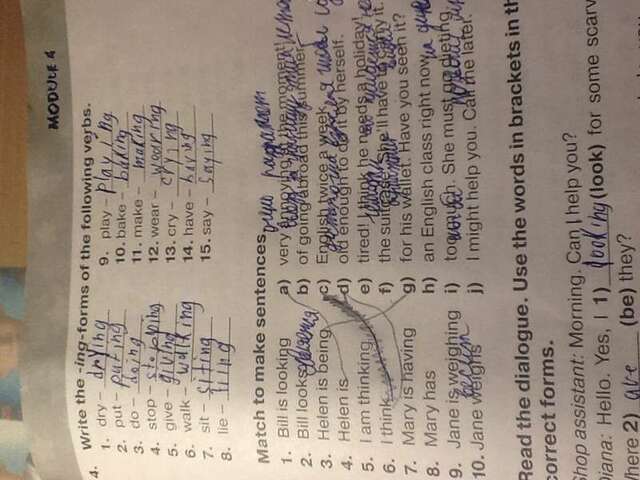 MODULE 4
4. Write the -ing-forms of the following verbs.
1. dry – drying
2. put – puting
3. do – doing
4. stop – stopping
5. give – giving
6. walk – walking
7. sit – siting
8. lie – liing
9. play – playing
10. bake – baking
11. make – making
12. wear – wearing
13. cry – crying
14. have – having
15. say – saying
Match to make sentences.
1. Bill is looking
2. Bill looks
3. Helen is being
4. Helen is
5. I am thinking
6. I think
7. Mary is having
8. Mary has
9. Jane is weighing
10. Jane weighs
a) very annoying at the moment!
b) of going abroad this summer.
c) English twice a week.
d) old enough to do it by herself.
e) tired! I think he needs a holiday!
f) the suitcase. She'll have to carry it.
g) for his wallet. Have you seen it?
h) an English class right now.
i) too much. She must go dieting.
j) I might help you. Call me later.
Read the dialogue. Use the words in brackets in th
correct forms.
Shop assistant: Morning. Can I help you?
Diana: Hello. Yes, I 1) looking (look) for some scarv
Where 2) are (be) they?